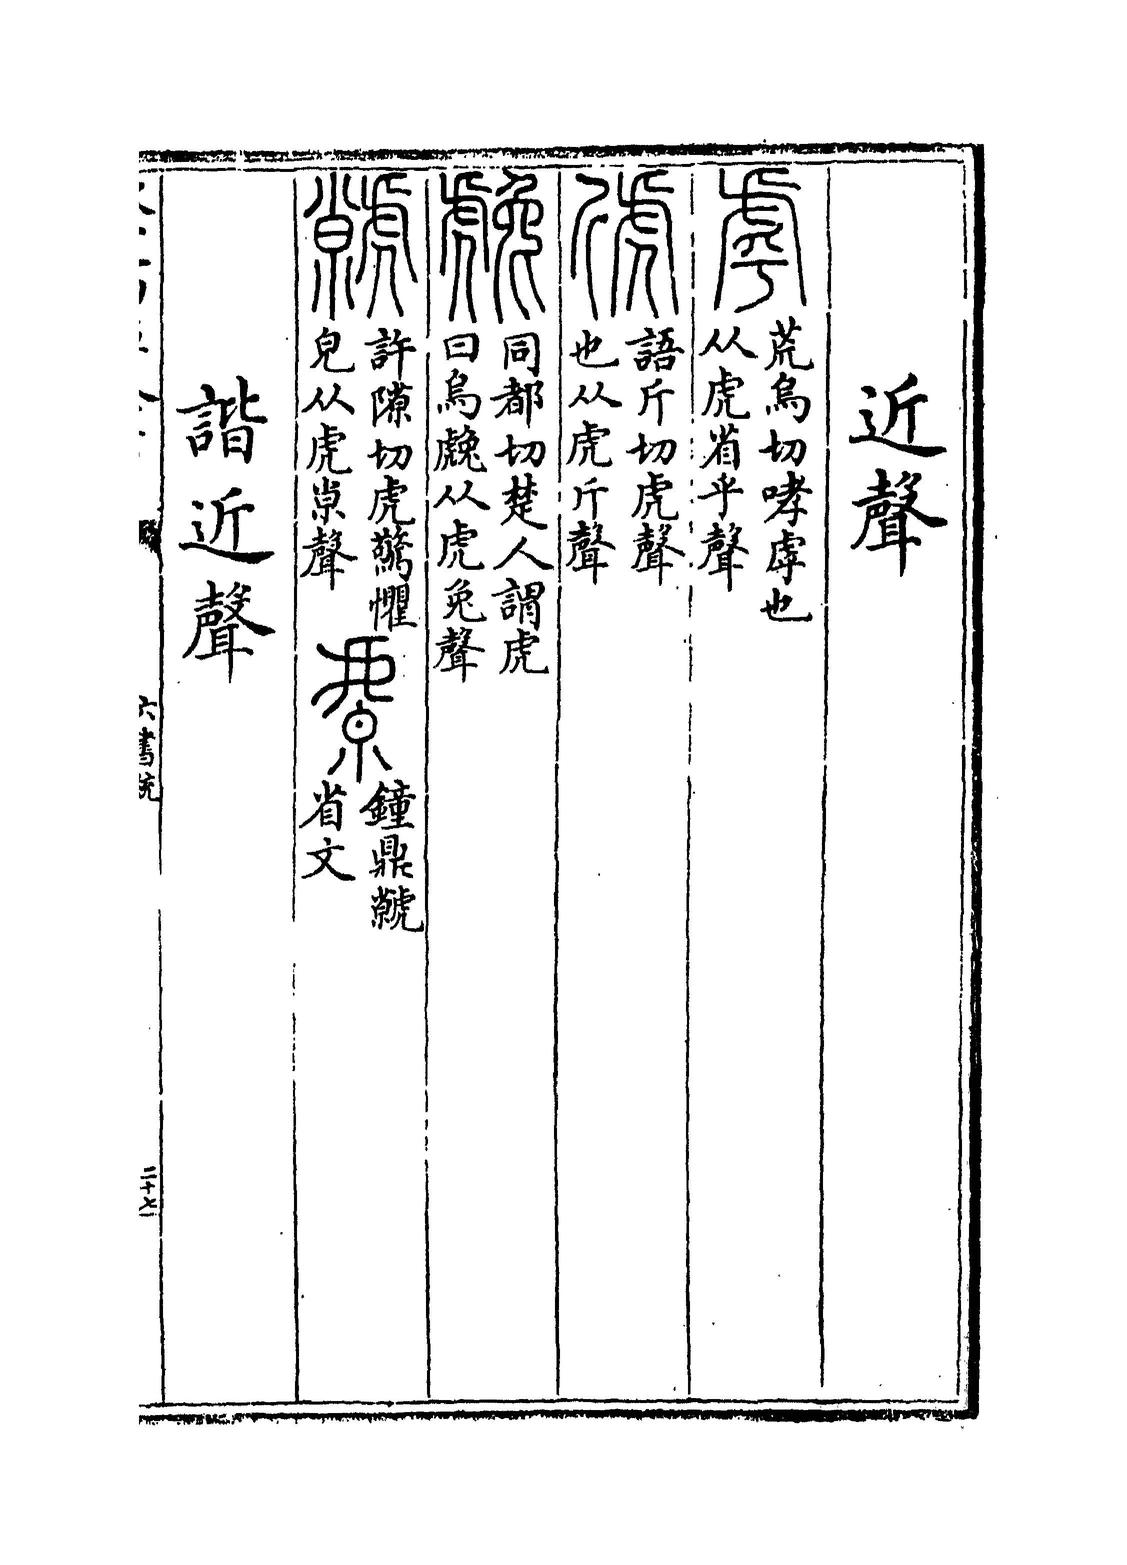 近聲
虖 荒烏切哮虖也
从虎省乎聲
虒 語斤切虎聲
也从虎斤聲
同都切楚人謂虎
曰烏䖘从虎兔聲
虩 許隙切虎驚懼
皃从虎𡭴聲
鐘鼎虩
省文
諧近聲
六書統
二十七